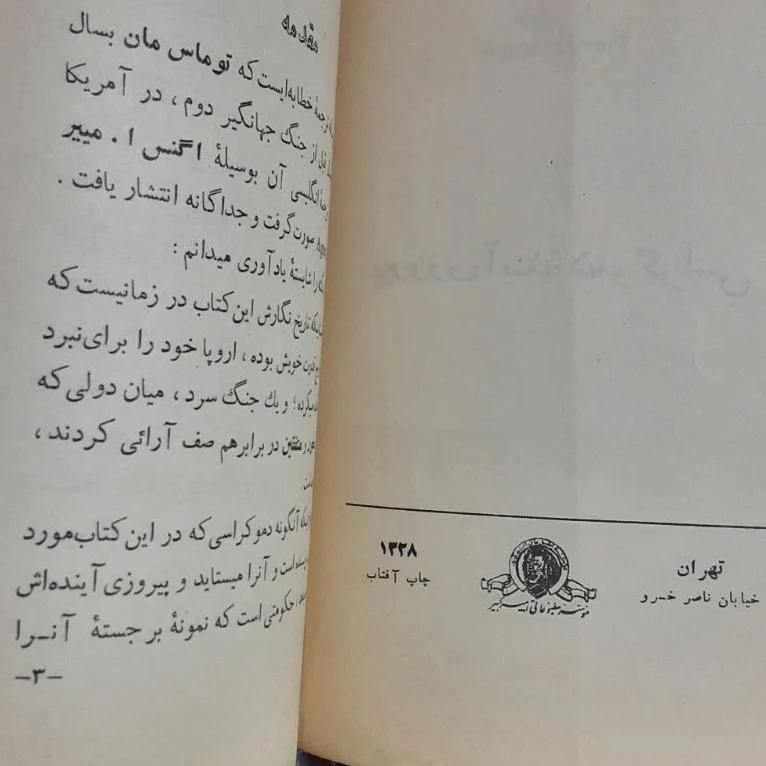 مقدمه
خطابه‌ایست که توماس مان بسال
قبل از جنگ جهانگیر دوم، در آمریکا
انگلیسی آن بوسیلهٔ اگنس ا. مییر
صورت گرفت و جداگانه انتشار یافت.
را شایستهٔ یادآوری میدانم:
تاریخ نگارش این کتاب در زمانیست که
خویش بوده، اروپا خود را برای نبرد
و یك جنگ سرد، میان دولی که
در برابر هم صف آرائی کردند،
آنگونه دموکراسی که در این کتاب مورد
است و آنرا میستاید و پیروزی آینده‌اش
حکومتی است که نمونهٔ برجستهٔ آنـرا
-۳-
تهران
خیابان ناصر خسرو
۱۳۲۸
چاپ آفتاب